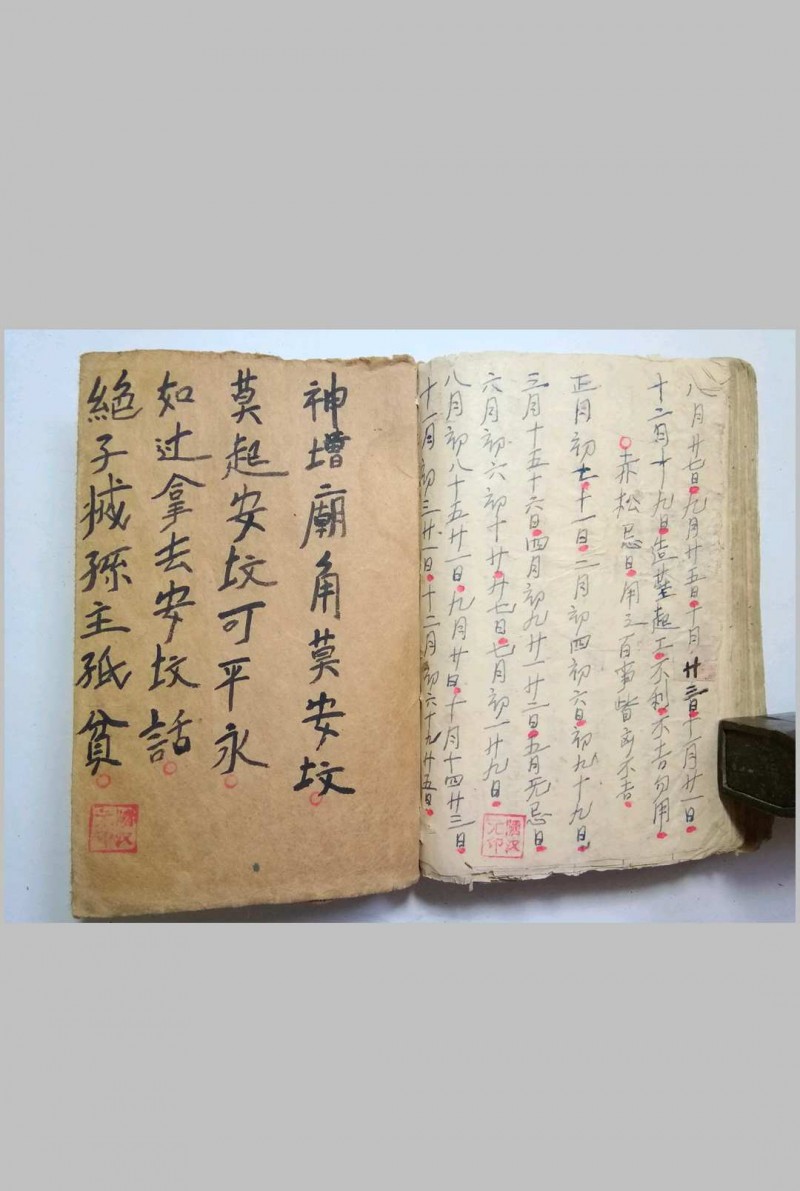 八月廿七日九月廿五日十月廿三日十一月廿一日
十二月十九日造葬起工不利不吉勿用
赤松忌日用之百事皆凶不吉
正月初七十一日二月初四初六日初九十九日
三月十五十六日四月初九廿一廿二日五月无忌日
六月初六初十廿廿七日七月初一廿九日
八月初八十五廿一日九月廿日十月十四廿三日
十一月初三廿一日十二月初六十九廿五日
神壇廟角莫安坟
莫起安坟可平永
如辻拿去安坟話
絕子滅孫主孤貧